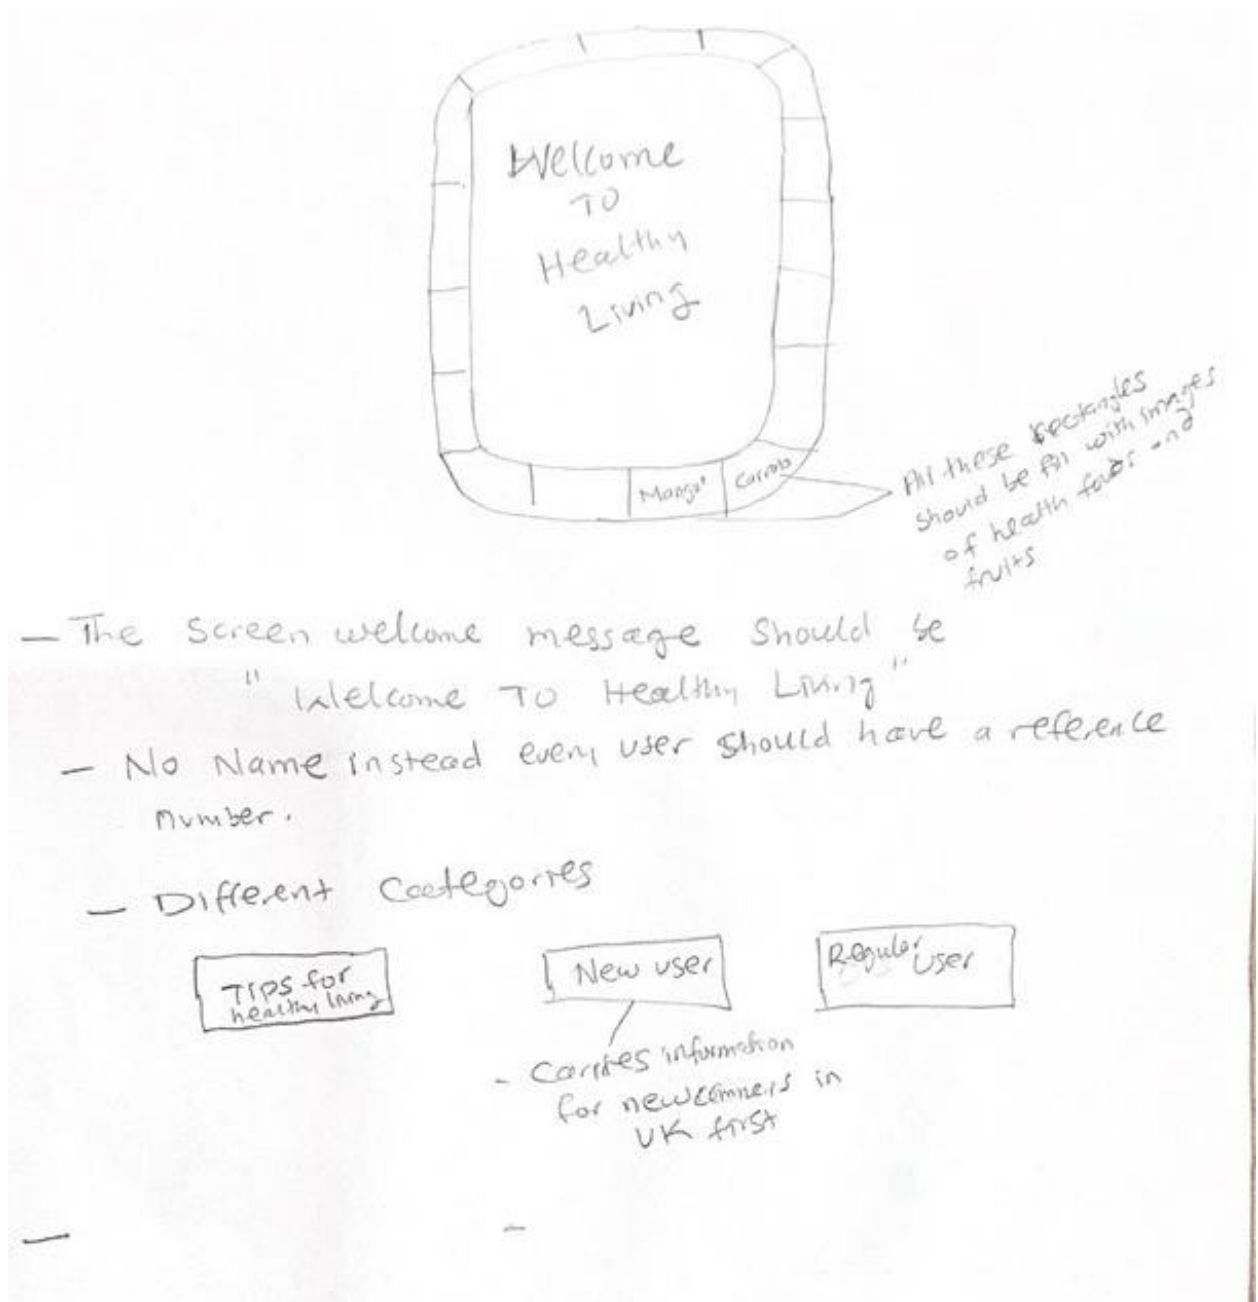 Welcome
TO
Healthy
Living
Mango
Carrots
All these rectangles
should be fill with images
of health foods and
fruits
— The screen welcome message should be
"Welcome TO Healthy Living"
— No Name instead every user should have a reference
number.
— Different Categories
TIPS for
healthy living
New user
Regular
User
- Carries information
for newcommers in
UK first
—
-